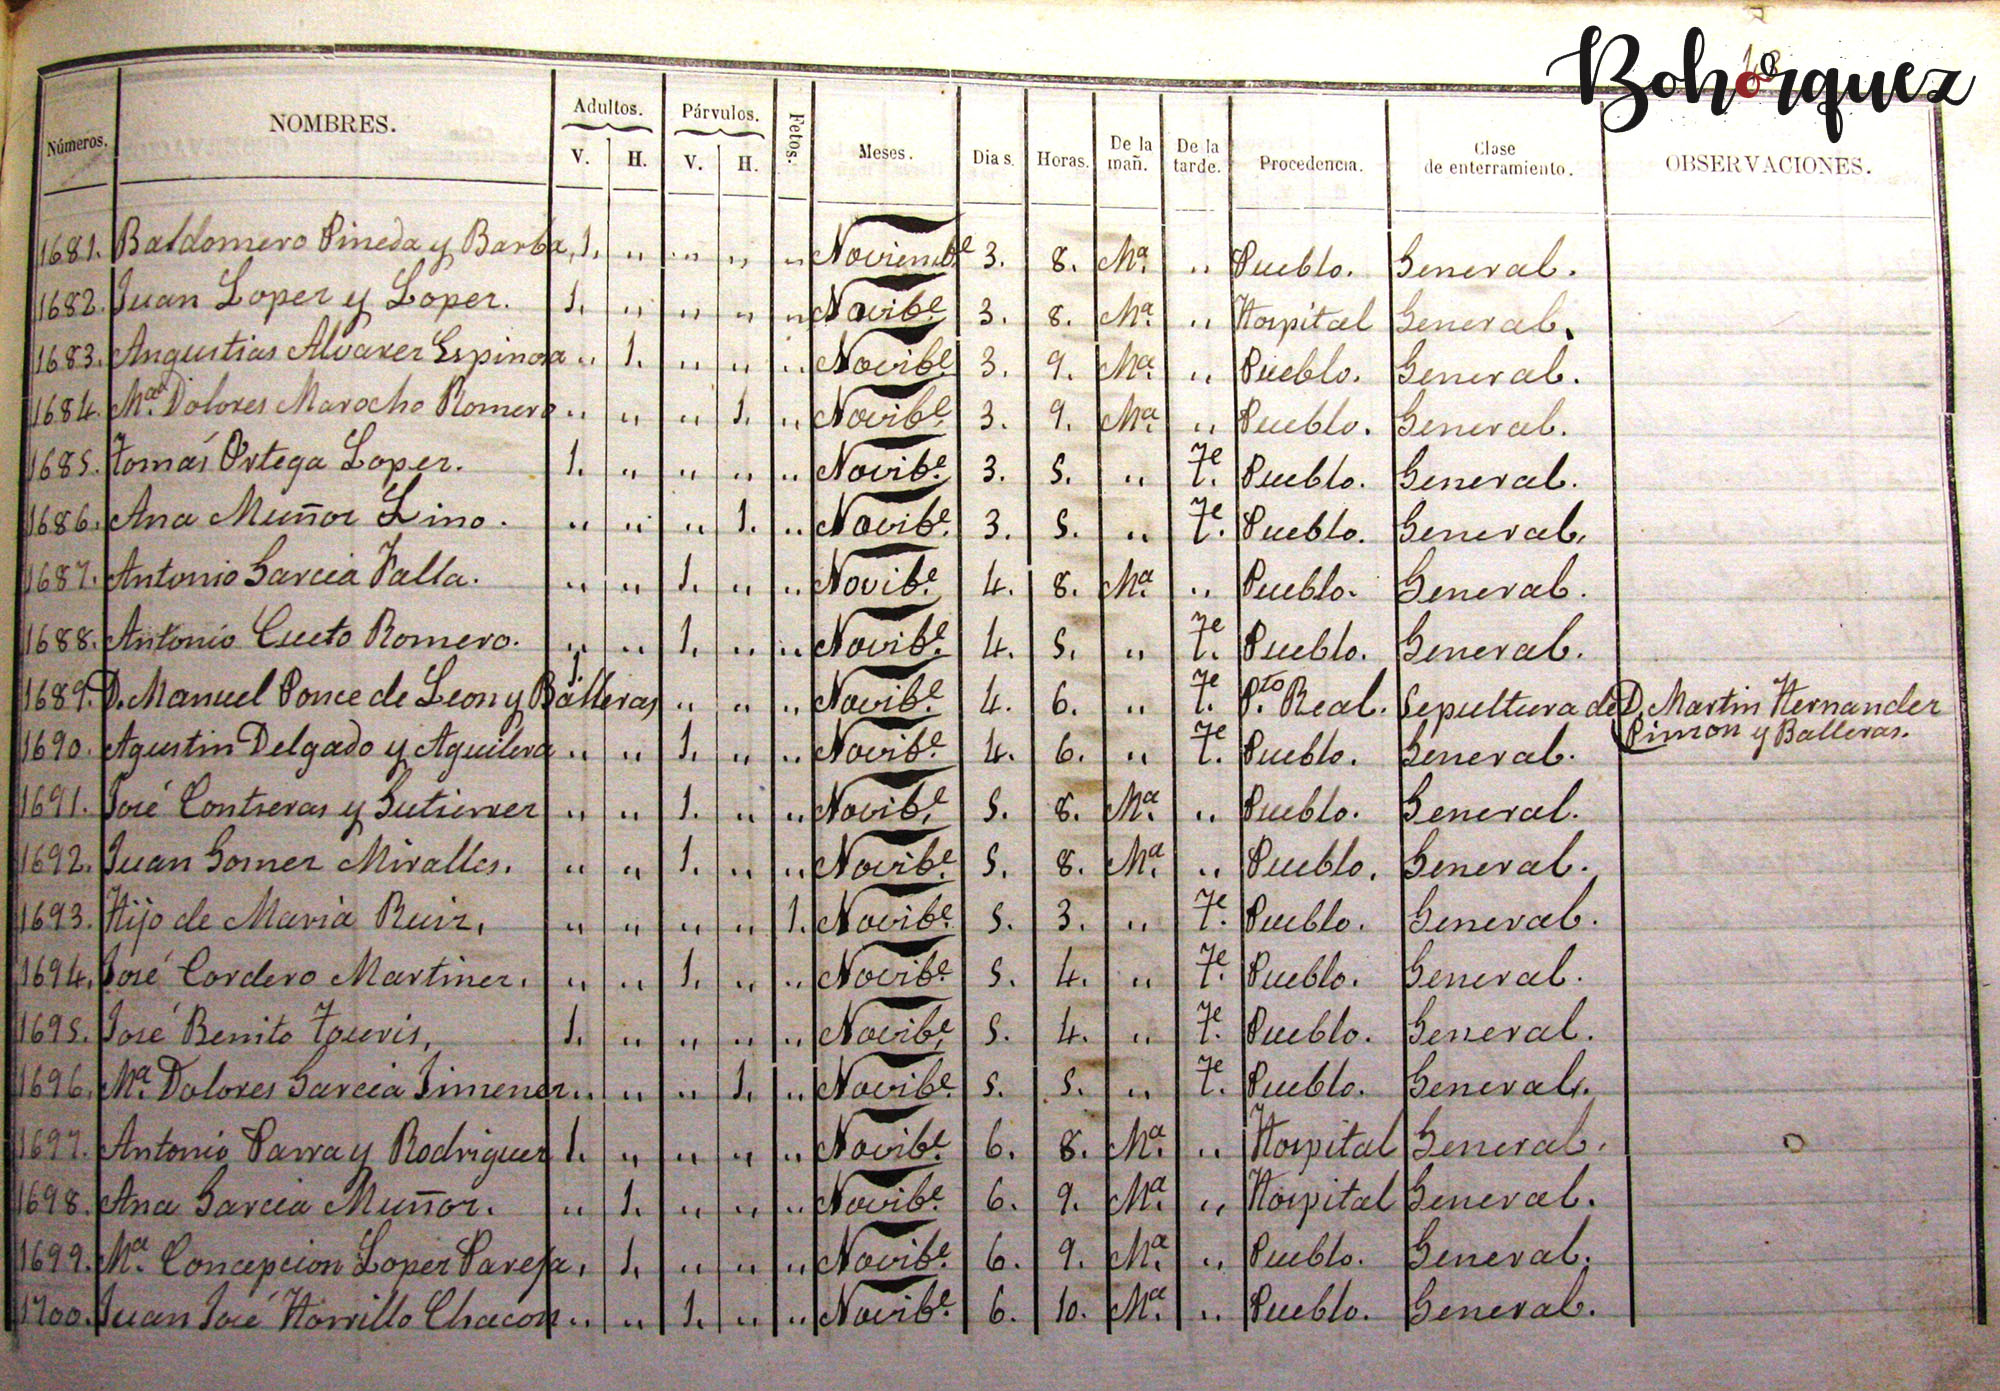 Bohórquez
Números. NOMBRES. Adultos. V. H. Párvulos. V. H. Fetos. Meses. Dias. Horas. De la mañ. De la tarde. Procedencia. Clase de enterramiento. OBSERVACIONES.
1681. Baldomero Pineda y Barba, 1. " " " " Noviembe 3. 8. Mª. " Pueblo. General.
1682. Juan Lopez y Lopez. 1. " " " " Novibe. 3. 8. Mª. " Hospital General.
1683. Angustias Alvarez Espinosa " 1. " " " Novibe. 3. 9. Mª. " Pueblo. General.
1684. Mª. Dolores Marocho Romero " " " 1. " Novibe. 3. 9. Mª. " Pueblo. General.
1685. Tomás Ortega Lopez. 1. " " " " Novibe. 3. 5. " Te. Pueblo. General.
1686. Ana Muñoz Lino. " " " 1. " Novibe. 3. 5. " Te. Pueblo. General.
1687. Antonio Garcia Valla. " " 1. " " Novibe. 4. 8. Mª. " Pueblo. General.
1688. Antonio Cueto Romero. " " 1. " " Novibe. 4. 5. " Te. Pueblo. General.
1689. D. Manuel Ponce de Leon y Balleras 1. " " " Novibe. 4. 6. " Te. Pto. Real. Sepultura de D. Martin Hernandez
Pinzon y Balleras.
1690. Agustin Delgado y Aguilera " " 1. " " Novibe. 4. 6. " Te. Pueblo. General.
1691. José Contreras y Gutierrez " " 1. " " Novibe. 5. 8. Mª. " Pueblo. General.
1692. Juan Gomez Miralles. " " 1. " " Novibe. 5. 8. Mª. " Pueblo. General.
1693. Hijo de Maria Ruiz, " " " " 1. Novibe. 5. 3. " Te. Pueblo. General.
1694. José Cordero Martinez. " " 1. " " Novibe. 5. 4. " Te. Pueblo. General.
1695. José Benito Touris, 1. " " " " Novibe. 5. 4. " Te. Pueblo. General.
1696. Mª. Dolores Garcia Jimenez " " " 1. " Novibe. 5. 5. " Te. Pueblo. General.
1697. Antonio Parra y Rodriguez 1. " " " " Novibe. 6. 8. Mª. " Hospital General.
1698. Ana Garcia Muñoz. " 1. " " " Novibe. 6. 9. Mª. " Hospital General.
1699. Mª. Concepcion Lopez Pareja, 1. " " " Novibe. 6. 9. Mª. " Pueblo. General.
1700. Juan José Horrillo Chacon " " 1. " " Novibe. 6. 10. Mª. " Pueblo. General.